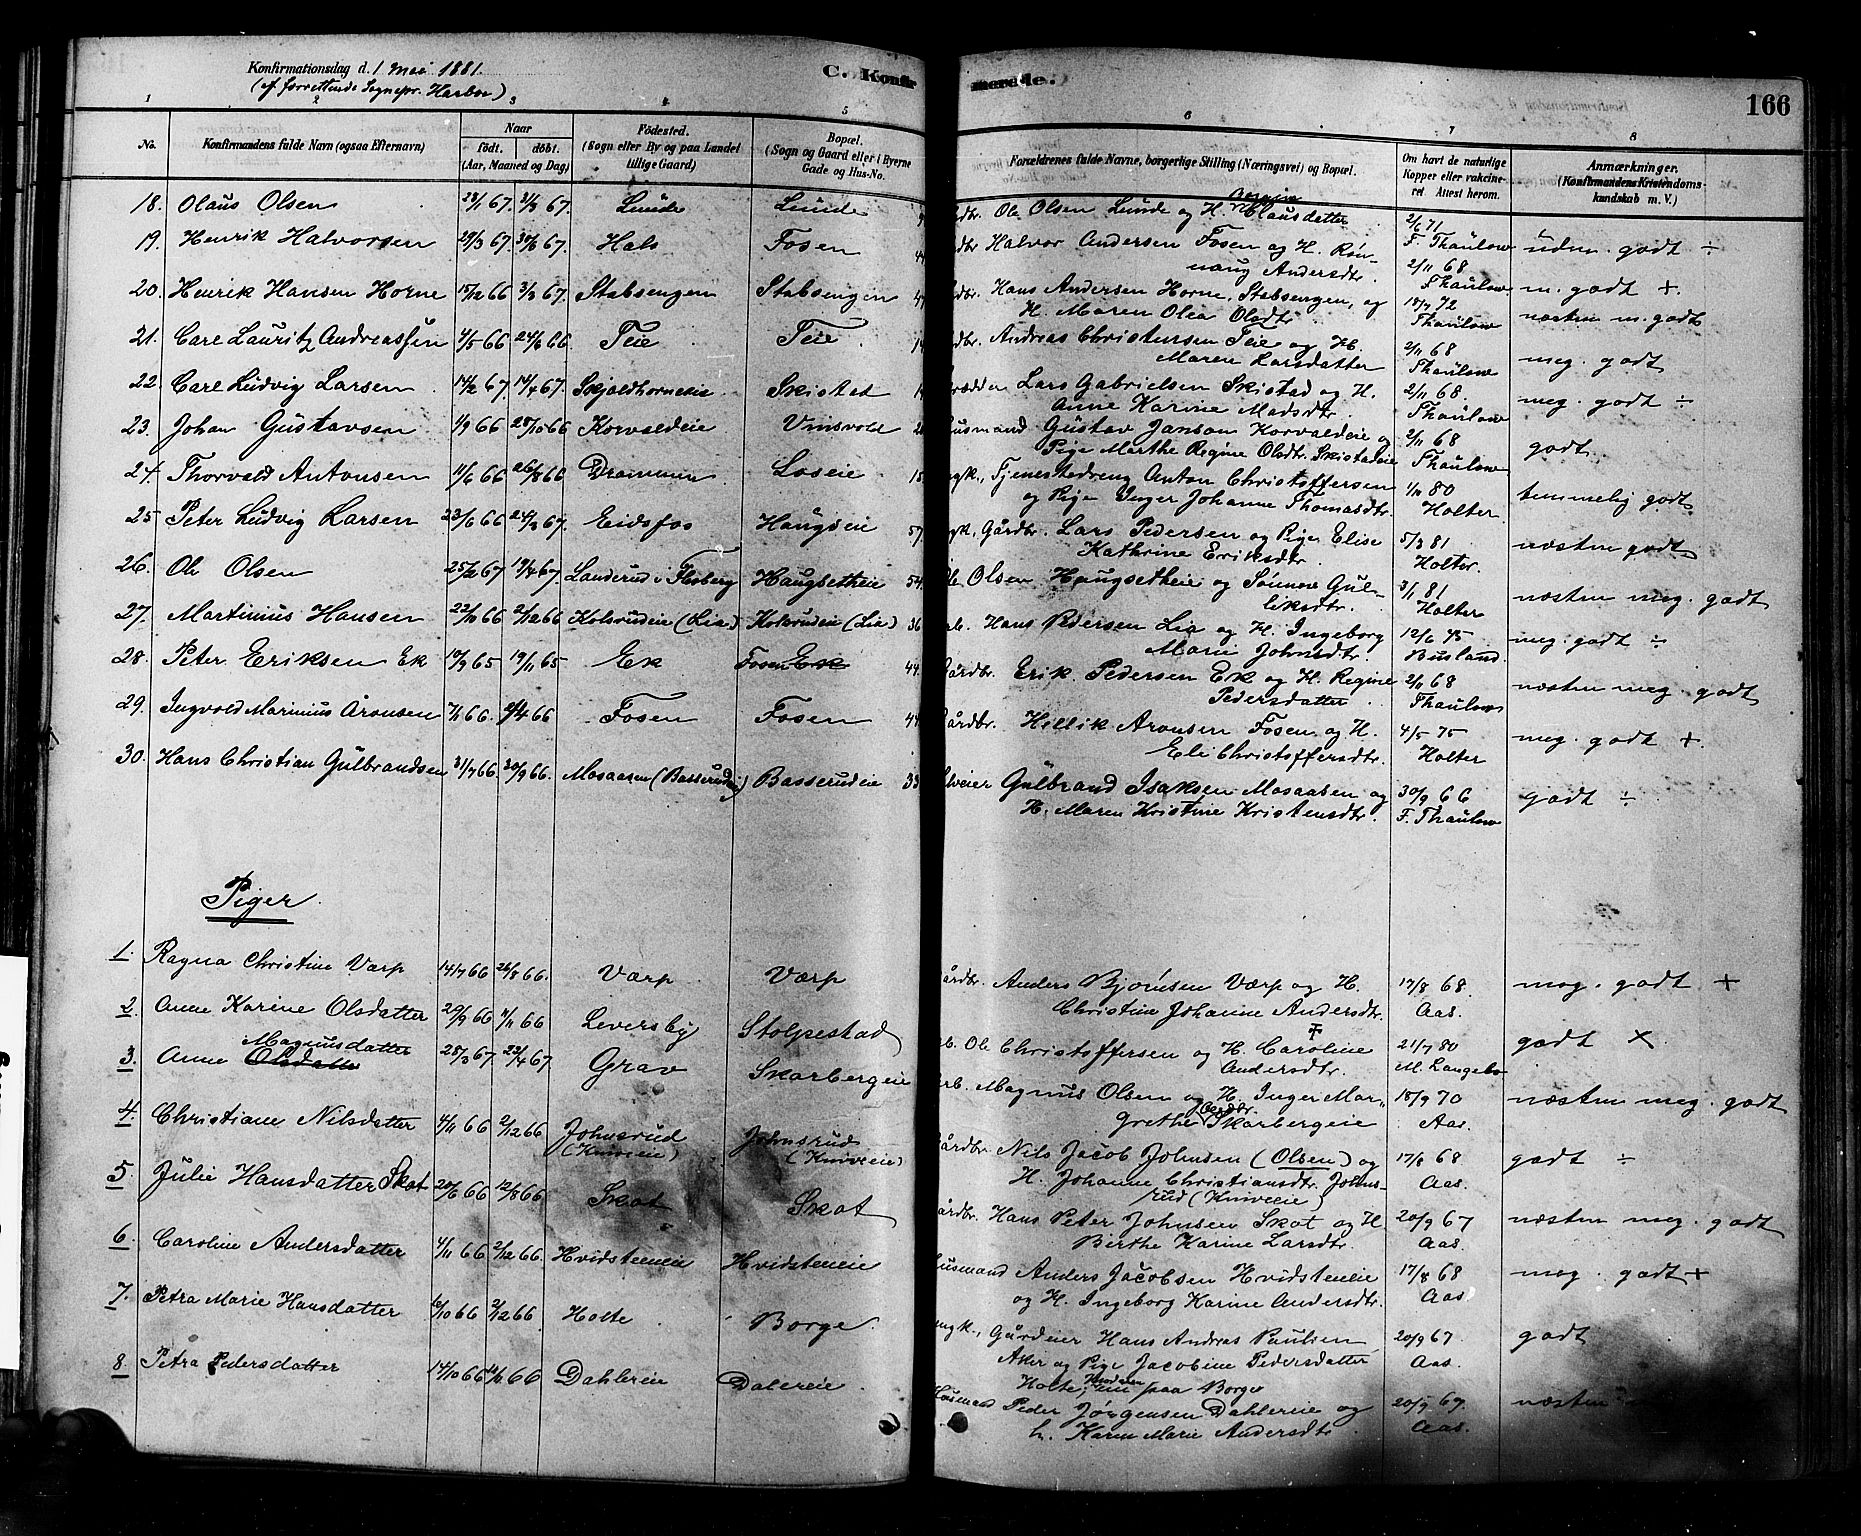 Konfirmationsdag d. 1 Mai 1881. C. Konfirmerede. 166
(af forrettende Sognepr. Harboe)
1 2 3 4 5 6 7 8
No. Konfirmandens fulde Navn (ogsaa Efternavn) Naar født. døbt. (Aar, Maaned og Dag) Fødested. (Sogn eller By og paa Landet tillige Gaard) Bopæl. (Sogn og Gaard eller i Byerne Gade og Hus-No. Forældrenes fulde Navne, borgerlige Stilling (Næringsvei) og Bopæl. Om havt de naturlige Kopper eller vakcineret. Attest herom. Anmærkninger. (Konfirmandens Kristendomskundskab m. V.)
18. Olaus Olsen 67. 67. Lunde Lunde Ole Olsen Lunde og H. Clausdatter 2/6 71 F. Thaulow
19. Henrik Halvorsen 29/3 67. 67. Hals Fosen Halvor Andersen Fosen og H. Rønnaug Andersdtr. 2/11 68 Thaulow udm. godt ÷
20. Henrik Hansen Horne 15/12 66 3/3 67. Stabsengen Stabsengen Hans Andersen Horne, Stabsengen, og H. Maren Olea Olsdtr. 18/7 72 Thaulow m. godt +
21. Carl Lauritz Andreassen 4/5 66 24/6 66 Teie Teie Andreas Christensen Teie og H. Maren Larsdatter 2/11 68 Thaulow næsten m. godt
22. Carl Ludvig Larsen 14/2 67. 14/4 67. Skjaldhorneie Skistad Lars Gabrielsen Skistad og H. Anne Karine Madsdtr. 2/11 68 Thaulow meg. godt
23. Johan Gustavsen 1/9 66 28/10 66 Korvaldeie Vinsvold Husmand Gustav Janson Korvaldeie og Pige Marthe Regine Olsdtr. Skistadeie 2/11 68 Thaulow meg. godt ÷
24. Thorvald Antonsen 11/6 66 26/8 66 Drammen Loseie Tjenestedreng Anton Christoffersen og Pige Inger Johanne Thomasdtr. 1/11 80 Holter. godt
25 Peter Ludvig Larsen 23/6 66 24/3 67. Eidsfos Haugseie 57. Gårdbr. Lars Pedersen og Pige Elise Kathrine Eriksdtr. 5/3 81 Holter. temmelig godt
26. Ole Olsen 25/2 67 19/4 67. Landerud i Flesberg Haugsetheie 54. Ole Olsen Haugsetheie og Sønnove Gulliksdtr. 3/1 81 Holter næsten godt
27. Martinius Hansen 22/10 66 2/12 66 Kolsrudeie (Lia) Kolsrudeie (Lia) 36 Hans Pedersen Lia og H. Ingeborg Marie Johnsdtr. 12/6 75 Busland. næsten meg. godt
28. Peter Eriksen Ek 17/9 65 19/11 65 Ek Fosen Ek 44. Gårdbr. Erik Pedersen Ek og H. Regine Pedersdatter 2/11 68 Thaulow meg. godt ÷
29. Ingvold Marinius Aronsen 66. 66 Fosen Fosen 44 Gårdbr. Hellik Aronsen Fosen og H. Eli Christoffersdtr. 4/5 75 Holter næsten meg. godt
30. Hans Christian Gulbrandsen 31/7 66. 30/9 66. Mosaasen (Basserudeie) Basserudeie 33 Gulbrand Isaksen Mosaasen og H. Maren Kristine Kristensdtr. 30/9 66 F. Thaulow meg. godt +
godt ÷
Piger
1. Ragna Christine Værp 14/7 66 26/8 66. Værp Værp Gårdbr. Anders Bjørnsen Værp og H. Christine Johanne Andersdtr. 17/8 68. Aas. meg. godt +
2. Anne Karine Olsdatter 29/9 66 66 Leversby Stolpestad Ole Christoffersen og H. Caroline Andersdtr. 21/7 80 M. Langebo godt X
3. Anne Magnusdatter Olsdatter 28/3 67. 22/4 67 Grav Skarbergeie Magnus Olsen og H. Inger Margrethe Skarbergeie 18/9 70 Aas. næsten meg. godt
4. Christiane Nilsdatter 4/11 66 2/12 66 Johnsrud (Kniveeie) Johnsrud (Kniveeie) Gårdbr. Nils Jacob Johnsen (Olsen) og H. Johanne Christiansdtr. Johnsrud (Kniveeie) 17/8 68 Aas. godt ÷
5. Julie Hansdatter Skot 20/6 66 12/8 66 Skot Skot Gårdbr. Hans Peter Johnsen Skot og H Birthe Karine Larsdtr. 20/9 67 Aas. næsten meg. godt
6. Caroline Andersdatter 4/11 66 2/12 66. Hvidsteneie Hvidsteneie Husmand Anders Jacobsen Hvidsteneie og H. Ingeborg Karine Andersdtr. 17/8 68 Aas. meg. godt +
7. Petra Marie Hansdatter 66 2/12 66. Holte Borge. Gårdeier Hans Andreas Paulsen Aker og Pige Jacobine Pedersdatter Holte, nu paa Borge 20/9 67. Aas. godt
8. Petra Pedersdatter 14/10 66 66 Dahlereie Dalereie Husmand Peder Jørgensen Dahlereie og h. Karen Marie Andersdtr 20/9 67. Aas. næsten